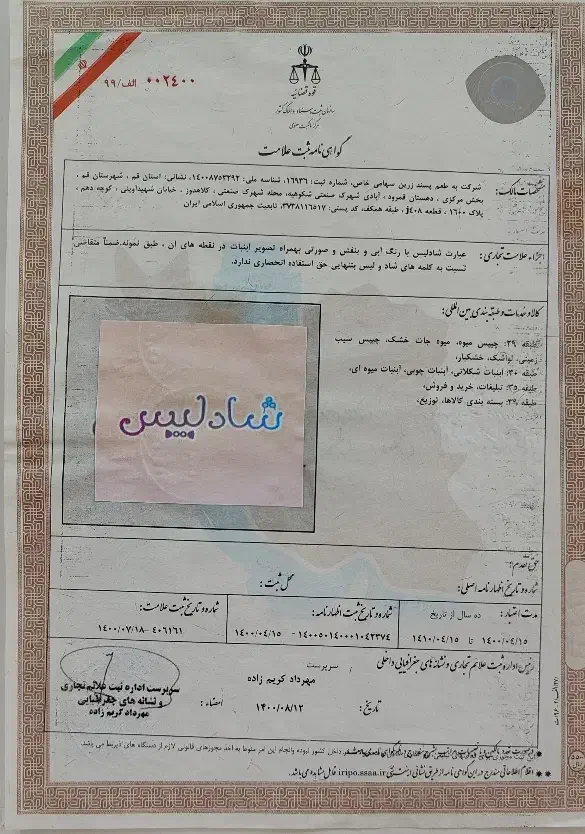 ۰۰۲۴۰۰ الف/۹۹
قوه قضائیه
سازمان ثبت اسناد و املاک کشور
مرکز مالکیت معنوی
گواهی نامه ثبت علامت
مشخصات مالک:
شرکت به طعم پسند زرین سهامی خاص، شماره ثبت: ۱۶۹۳۶، شناسه ملی: ۱۴۰۰۸۷۵۳۲۹۲، نشانی: استان قم ، شهرستان قم ،
بخش مرکزی ، دهستان قمرود ، آبادی شهرک صنعتی شکوهیه، محله شهرک صنعتی ، کلاهدوز ، خیابان شهیداوینی ، کوچه دهم ،
پلاک ۱۶۰۰ ، قطعه ۴۰۸، طبقه همکف، کد پستی: ۳۷۳۸۱۱۶۵۱۷، تابعیت جمهوری اسلامی ایران
اجزاء علامت تجاری:
عبارت شادلیس با رنگ آبی و بنفش و صورتی بهمراه تصویر ابنبات در نقطه های ان ، طبق نمونه.ضمناً متقاضی
نسبت به کلمه های شاد و لیس بتنهایی حق استفاده انحصاری ندارد.
کالا و خدمات و طبقه بندی بین المللی:
طبقه ۲۹: چیپس میوه، میوه جات خشک، چیپس سیب
زمینی، لواشک، خشکبار،
طبقه ۳۰: ابنبات شکلاتی، ابنبات چوبی، ابنبات میوه ای،
طبقه ۳۵: تبلیغات، خرید و فروش،
طبقه ۳۹: بسته بندی کالاها، توزیع،
شادلیس
حق تقدم:
شماره و تاریخ اظهارنامه اصلی:
محل ثبت:
مدت اعتبار: ده سال از تاریخ
۱۴۰۰/۰۴/۱۵ تا ۱۴۱۰/۰۴/۱۵
شماره و تاریخ ثبت اظهارنامه:
۱۴۰۰۵۰۱۴۰۰۰۱۰۴۲۳۷۴ - ۱۴۰۰/۰۴/۱۵
شماره و تاریخ ثبت علامت:
۴۰۶۱۶۱ - ۱۴۰۰/۰۷/۱۸
رئیس اداره ثبت علائم تجاری و نشانه های جغرافیایی داخلی
سرپرست
مهرداد کریم زاده
تاریخ: ۱۴۰۰/۰۸/۱۲
امضاء:
سرپرست اداره ثبت علائم تجاری
و نشانه های جغرافیایی
مهرداد کریم زاده
داخل کشور نبوده وانجام این امر منوط به اخذ مجوزهای قانونی لازم از دستگاه های ذیربط می باشد
** اقلام اطلاعاتی مندرج در این گواهی نامه از طریق نشانی اینترنتی iripo.ssaa.ir قابل مشاهده می باشد.